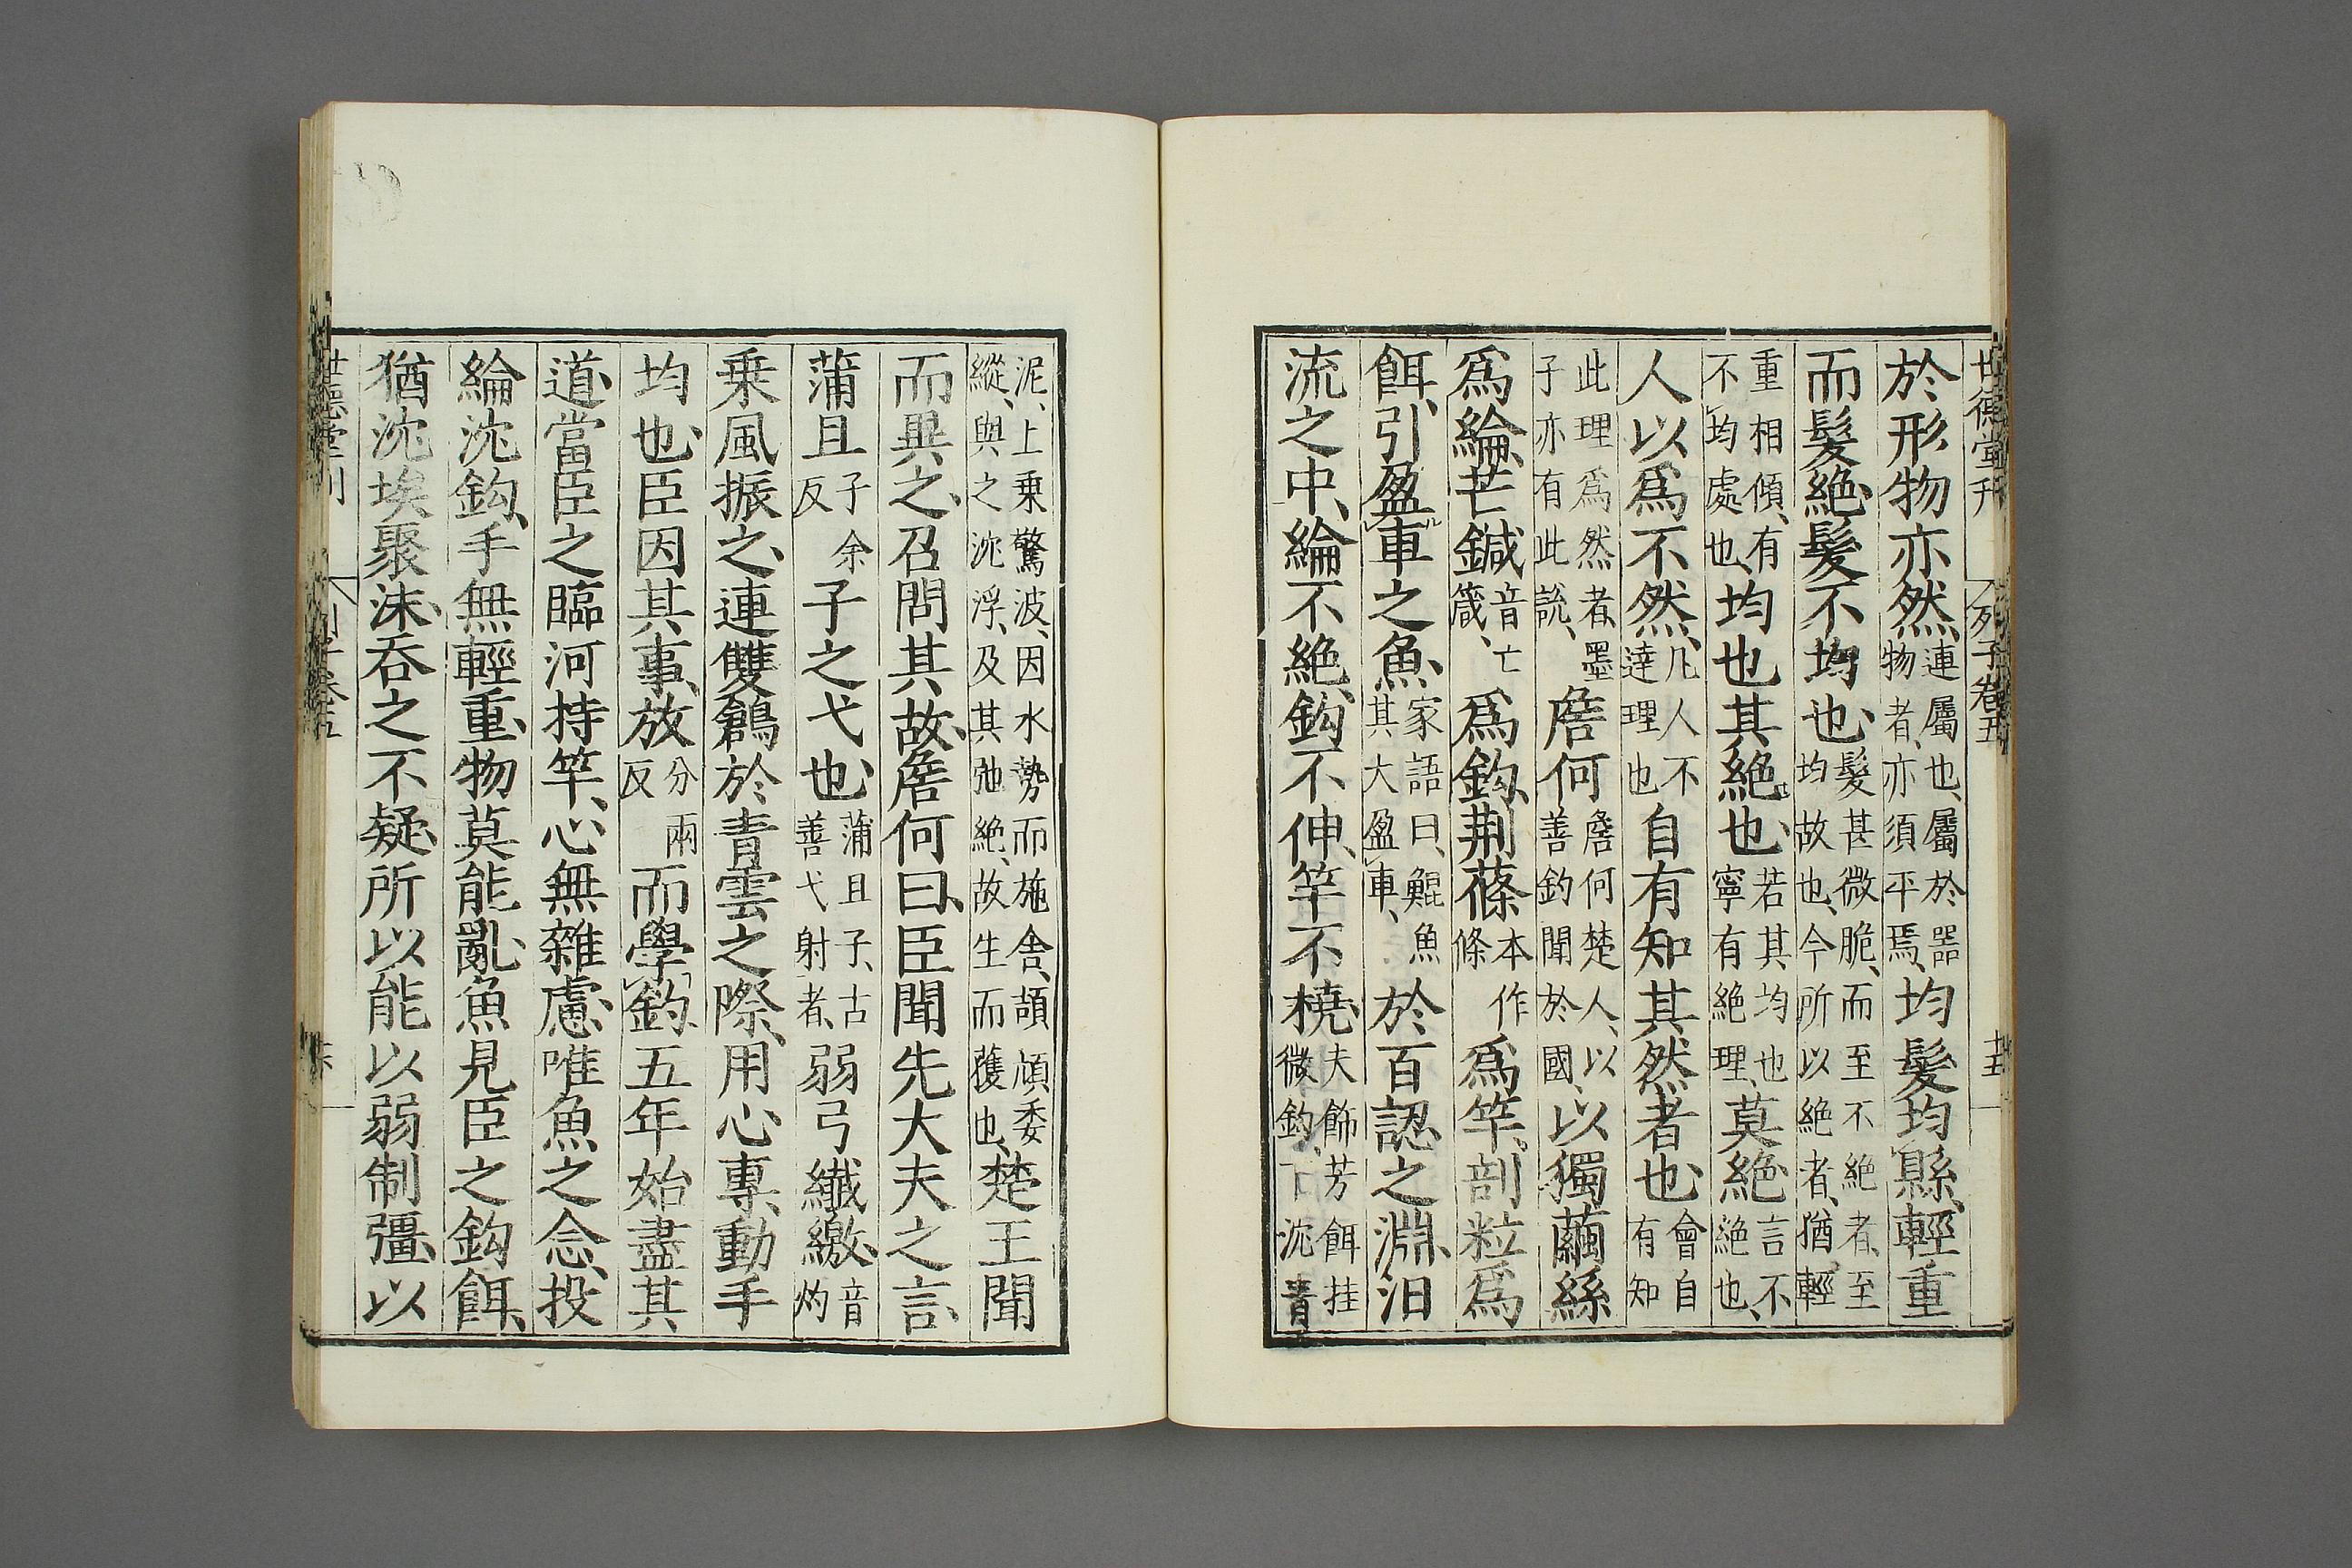 世德堂刊 列子卷五 十五
於形物亦然、連屬也、屬於器物者、亦須平焉、均髮均縣、輕重
而髮絶、髮不均也、髮甚微脆、而至不絶者、至均故也、今所以絶者、猶輕
重相傾、有不均處也、均也其絶也、若其均也寧有絶理、莫絶言不絶也、
人以爲不然、凡人不達理也自有知其然者也、會自有知
此理爲然者、墨子亦有此說、詹何詹何楚人、以善釣聞於國、以獨繭絲
爲綸、芒鍼音亡箴、爲鈎、荆蓧本作條爲竿、剖粒爲
餌、引盈車之魚、家語曰、鯤魚其大盈車、於百認之淵、汨
流之中、綸不絶、鈎不伸、竿不橈、夫飾芳餌挂微釣、下沈青
泥、上乗驚波、因水勢而施舍、頡頏委縱、與之沈浮、及其弛絶、故生而獲也、楚王聞
而異之、召問其故、詹何曰、臣聞先大夫之言、
蒲且子余反子之弋也、蒲且子、古善弋射者、弱弓纎繳、音灼
乗風振之、連雙鶬於青雲之際、用心專、動手
均也、臣因其事、放分兩反而學釣、五年始盡其
道、當臣之臨河持竿、心無雜慮、唯魚之念、投
綸沈鈎、手無輕重、物莫能亂、魚見臣之鈎餌、
猶沈埃聚沫、呑之不疑、所以能以弱制彊、以
世德堂刊 列子卷五 十六